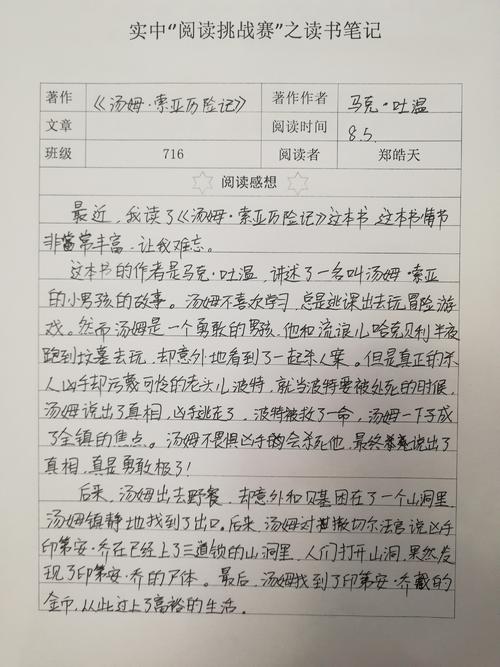 实中“阅读挑战赛”之读书笔记
著作 《汤姆·索亚历险记》 著作作者 马克·吐温
文章 阅读时间 8.5.
班级 716 阅读者 郑皓天
阅读感想
最近，我读了《汤姆·索亚历险记》这本书，这本书情节
非常丰富，让我难忘。
这本书的作者是马克·吐温，讲述了一名叫汤姆·索亚
的小男孩的故事。汤姆不喜欢学习，总是逃课出去玩冒险游
戏。然而汤姆是一个勇敢的男孩，他和流浪儿哈克贝利半夜
跑到坟墓去玩，却意外地看到了一起杀人案。但是真正的杀
人凶手却污蔑可怜的老头儿波特，就当波特要被处死的时候，
汤姆说出了真相，凶手逃走了，波特被救了一命，汤姆一下子成
了全镇的焦点。汤姆不畏惧凶手会杀死他，最终说出了
真相，真是勇敢极了！
后来，汤姆出去野餐，却意外和贝基困在了一个山洞里，
汤姆镇静地找到了出口。后来，汤姆对撒切尔法官说凶手
印第安·乔在已经上了三道锁的山洞里，人们打开山洞，果然发
现了印第安·乔的尸体。最后，汤姆找到了印第安·乔藏的
金币，从此过上了富裕的生活。